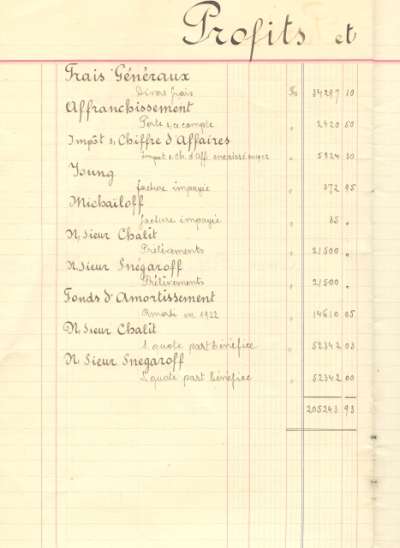 Profits et
Frais Généraux
Divers frais Frs 34287 10
Affranchissement
Perte s/ce compte " 2420 60
Impôt s, Chiffre d'Affaires
Impot s. Ch. d'Aff. " 5924 30
Young
facture impayée " 372 95
Michaïloff
facture impayée " 85 "
N, Sieur Chalit
Prélèvements " 21500 "
N, Sieur Snégaroff
Prélèvements " 21500 "
Fonds d'Amortissement
Amorti en 1922 " 14610 05
N Sieur Chalit
S, quote part bénéfice " 52342 03
N Sieur Snegaroff
S, quote part bénéfice " 52342 00
205243 93